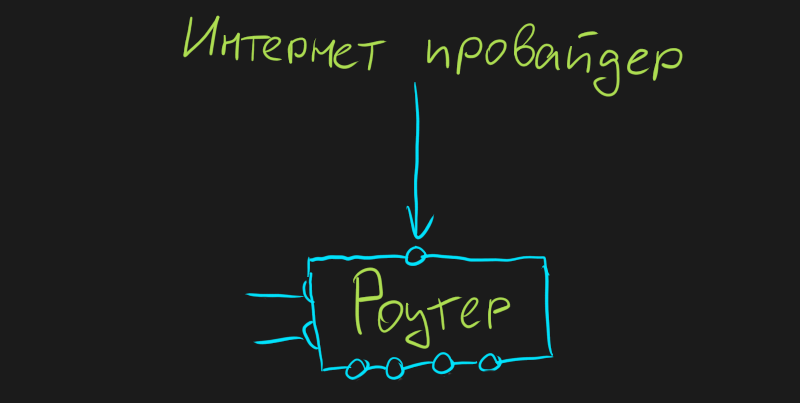 Интернет провайдер
Роутер